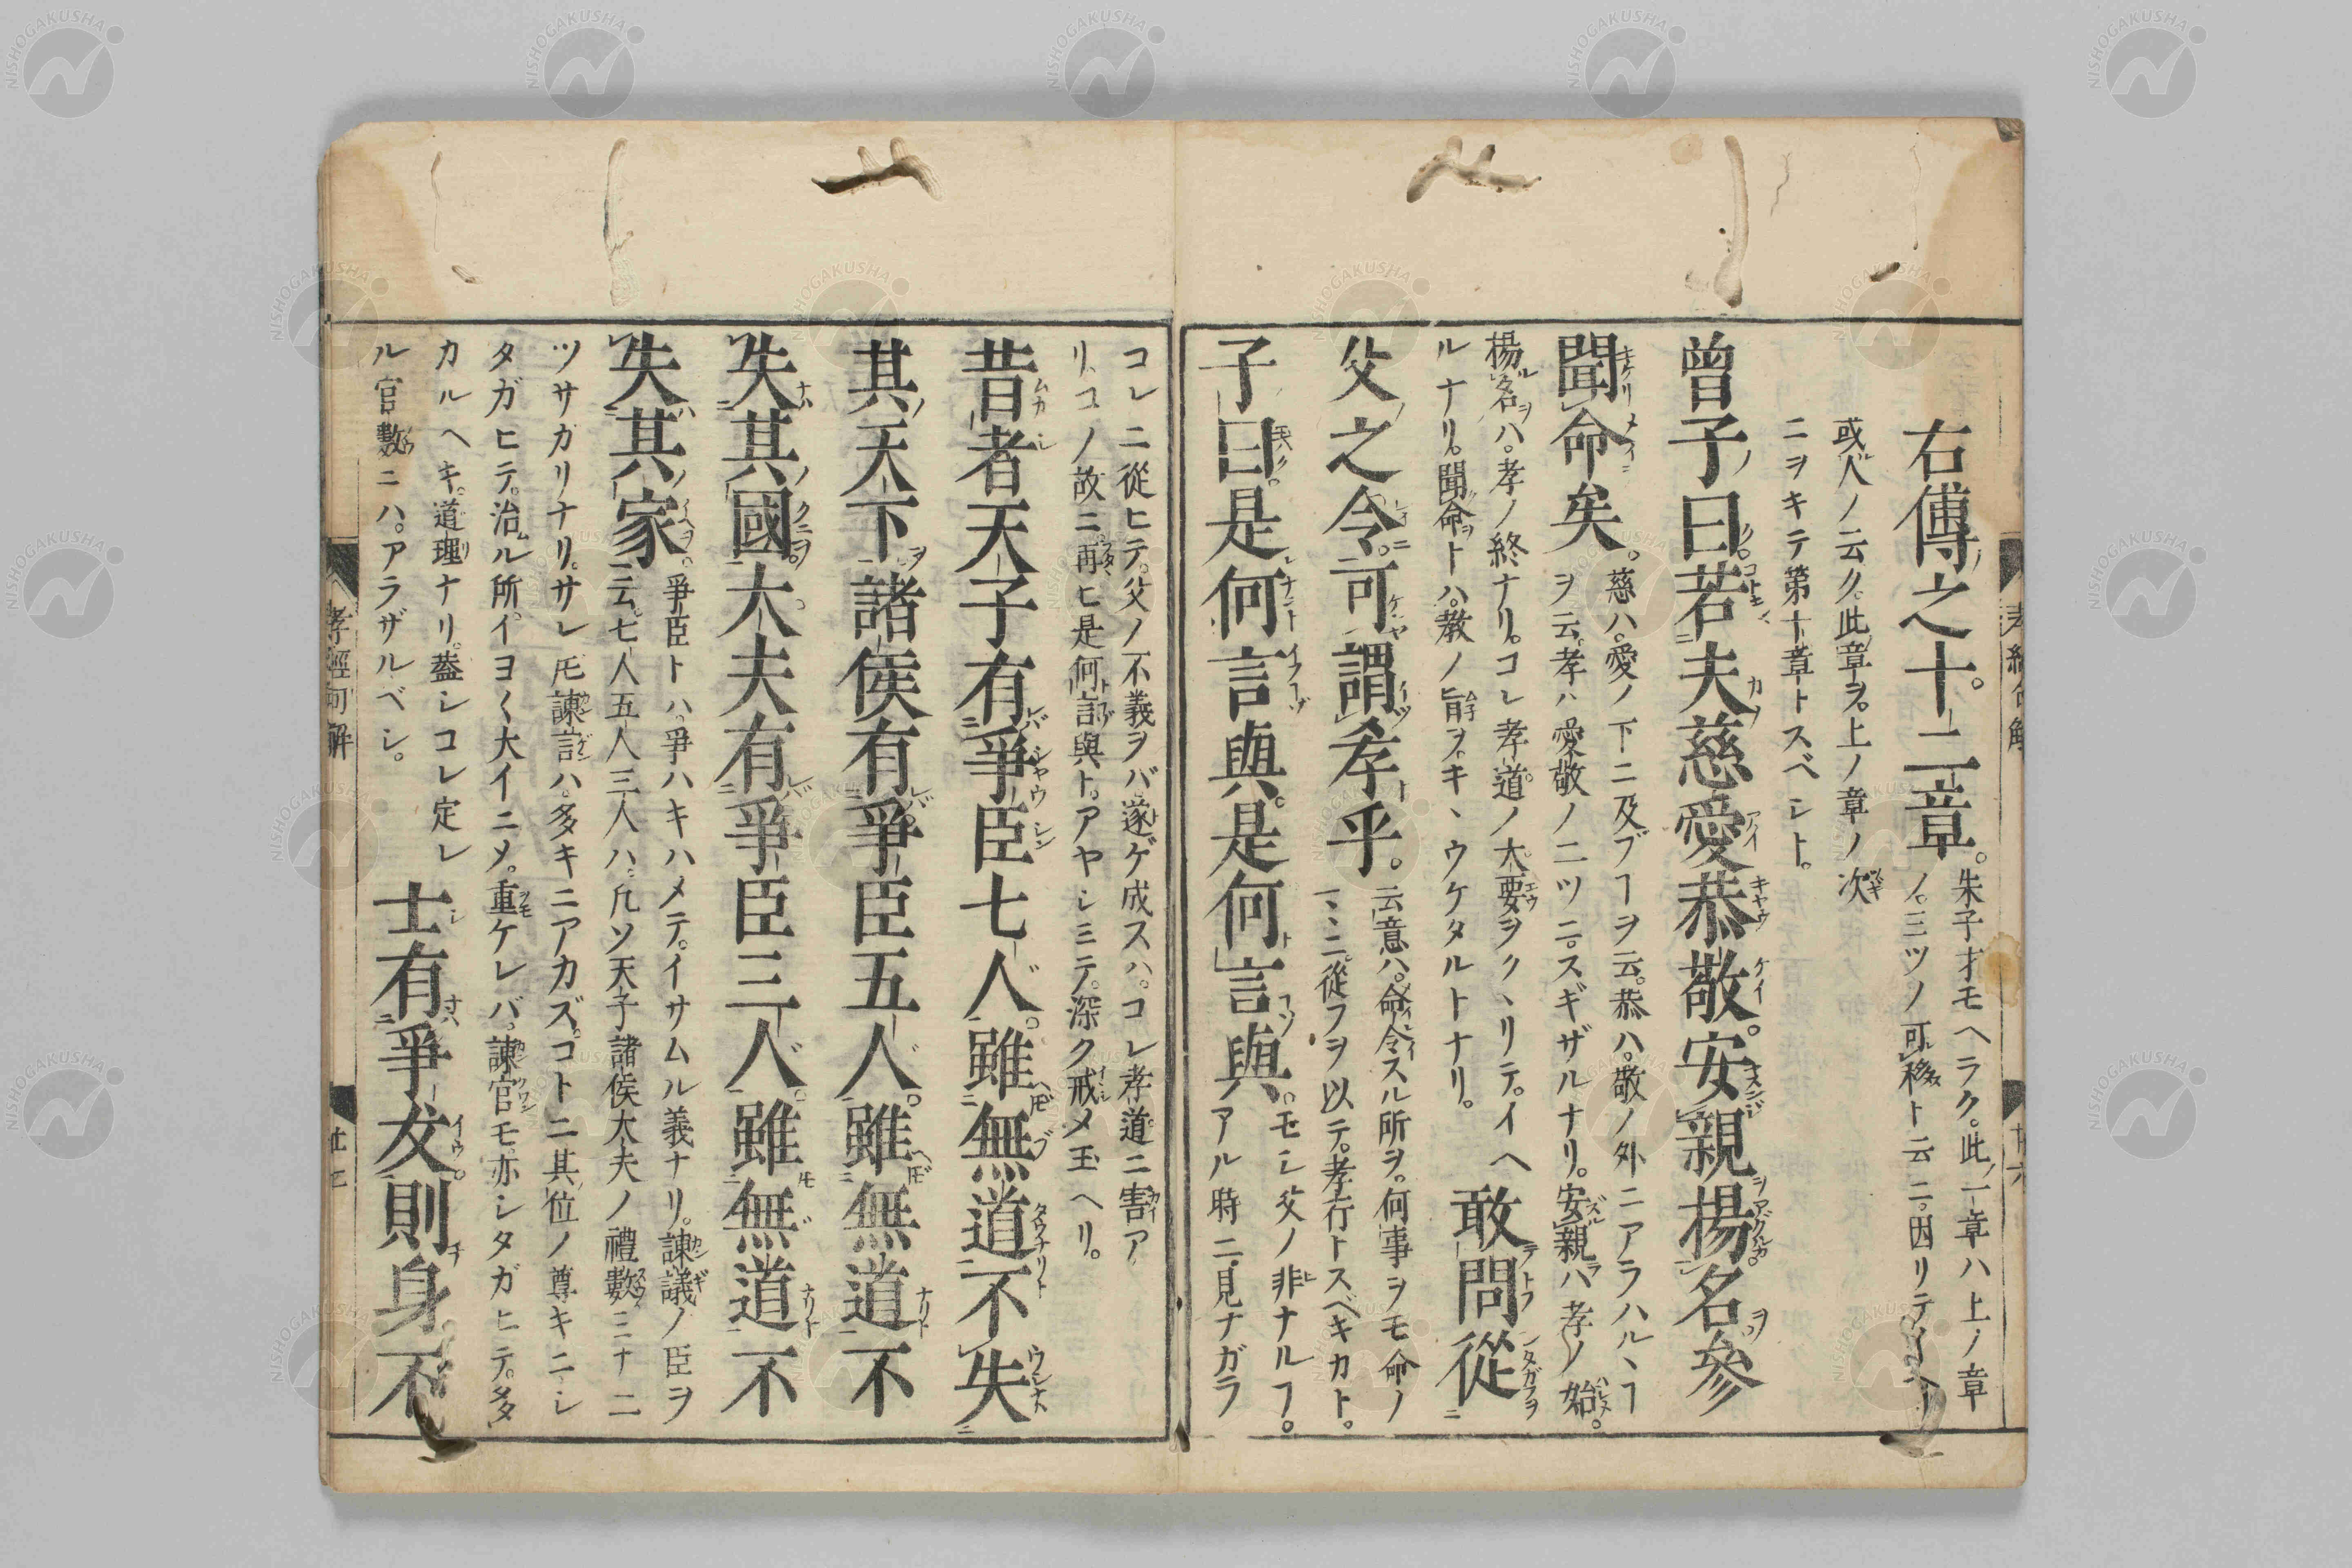 右傳之十二章。朱子才モヘラク。此一章ハ上ノ章
ノ。三ツノ可移ト云ニ。因リテイヘリ
或人ノ云ク。此章ヲ。上ノ章ノ次
ニヲキテ第十章トスベシト。
曾子曰。若夫慈愛恭敬。安親揚名參
聞命矣。慈ハ。愛ノ下ニ及ブヿヲ云。恭ハ。敬ノ外ニアラハルヽヿ
ヲ云。孝ハ愛敬ノ二ツニ。スギザルナリ。安親ハ孝ノ始。
揚名ハ。孝ノ終ナリ。コレ孝道ノ大要ヲクヽリテ。イヘ
ルナリ。聞命トハ。教ノ旨ヲキヽウケタルトナリ。
敢問從
父之令。可謂孝乎。云意ハ。命令スル所ヲ。何事ヲモ命ノ
マヽニ。從フヲ以テ。孝行トスベキカト。
子曰。是何言與。是何言與。モシ父ノ非ナルヿ。
アル時ニ。見ナガラ
コレニ從ヒテ。父ノ不義ヲバ。遂ゲ成スハ。コレ孝道ニ害ア
リ。コノ故ニ。再ヒ是何言與ト。アヤシミテ。深ク戒メ玉ヘリ。
昔者天子有爭臣七人。雖無道不失
其天下。諸侯有爭臣五人。雖無道不
失其國。大夫有爭臣三人。雖無道不
失其家。爭臣トハ。爭ハキハメテ。イサムル義ナリ。諫議ノ臣ヲ
云。七人五人三人ハ。凡ソ天子諸侯大夫ノ禮數ミナ二
ツサガリナリ。サレ𪜈諫言ハ。多キニアカズ。コトニ其位ノ尊キニシ
タガヒテ。治ル所。イヨ〱大イニメ。重ケレバ。諫官モ。亦シタガヒテ。多
カルヘキ。道理ナリ。蓋シコレ定レ
ル官數ニハ。アラザルベシ。
士有爭友。則身不
孝經句解
孝經句解